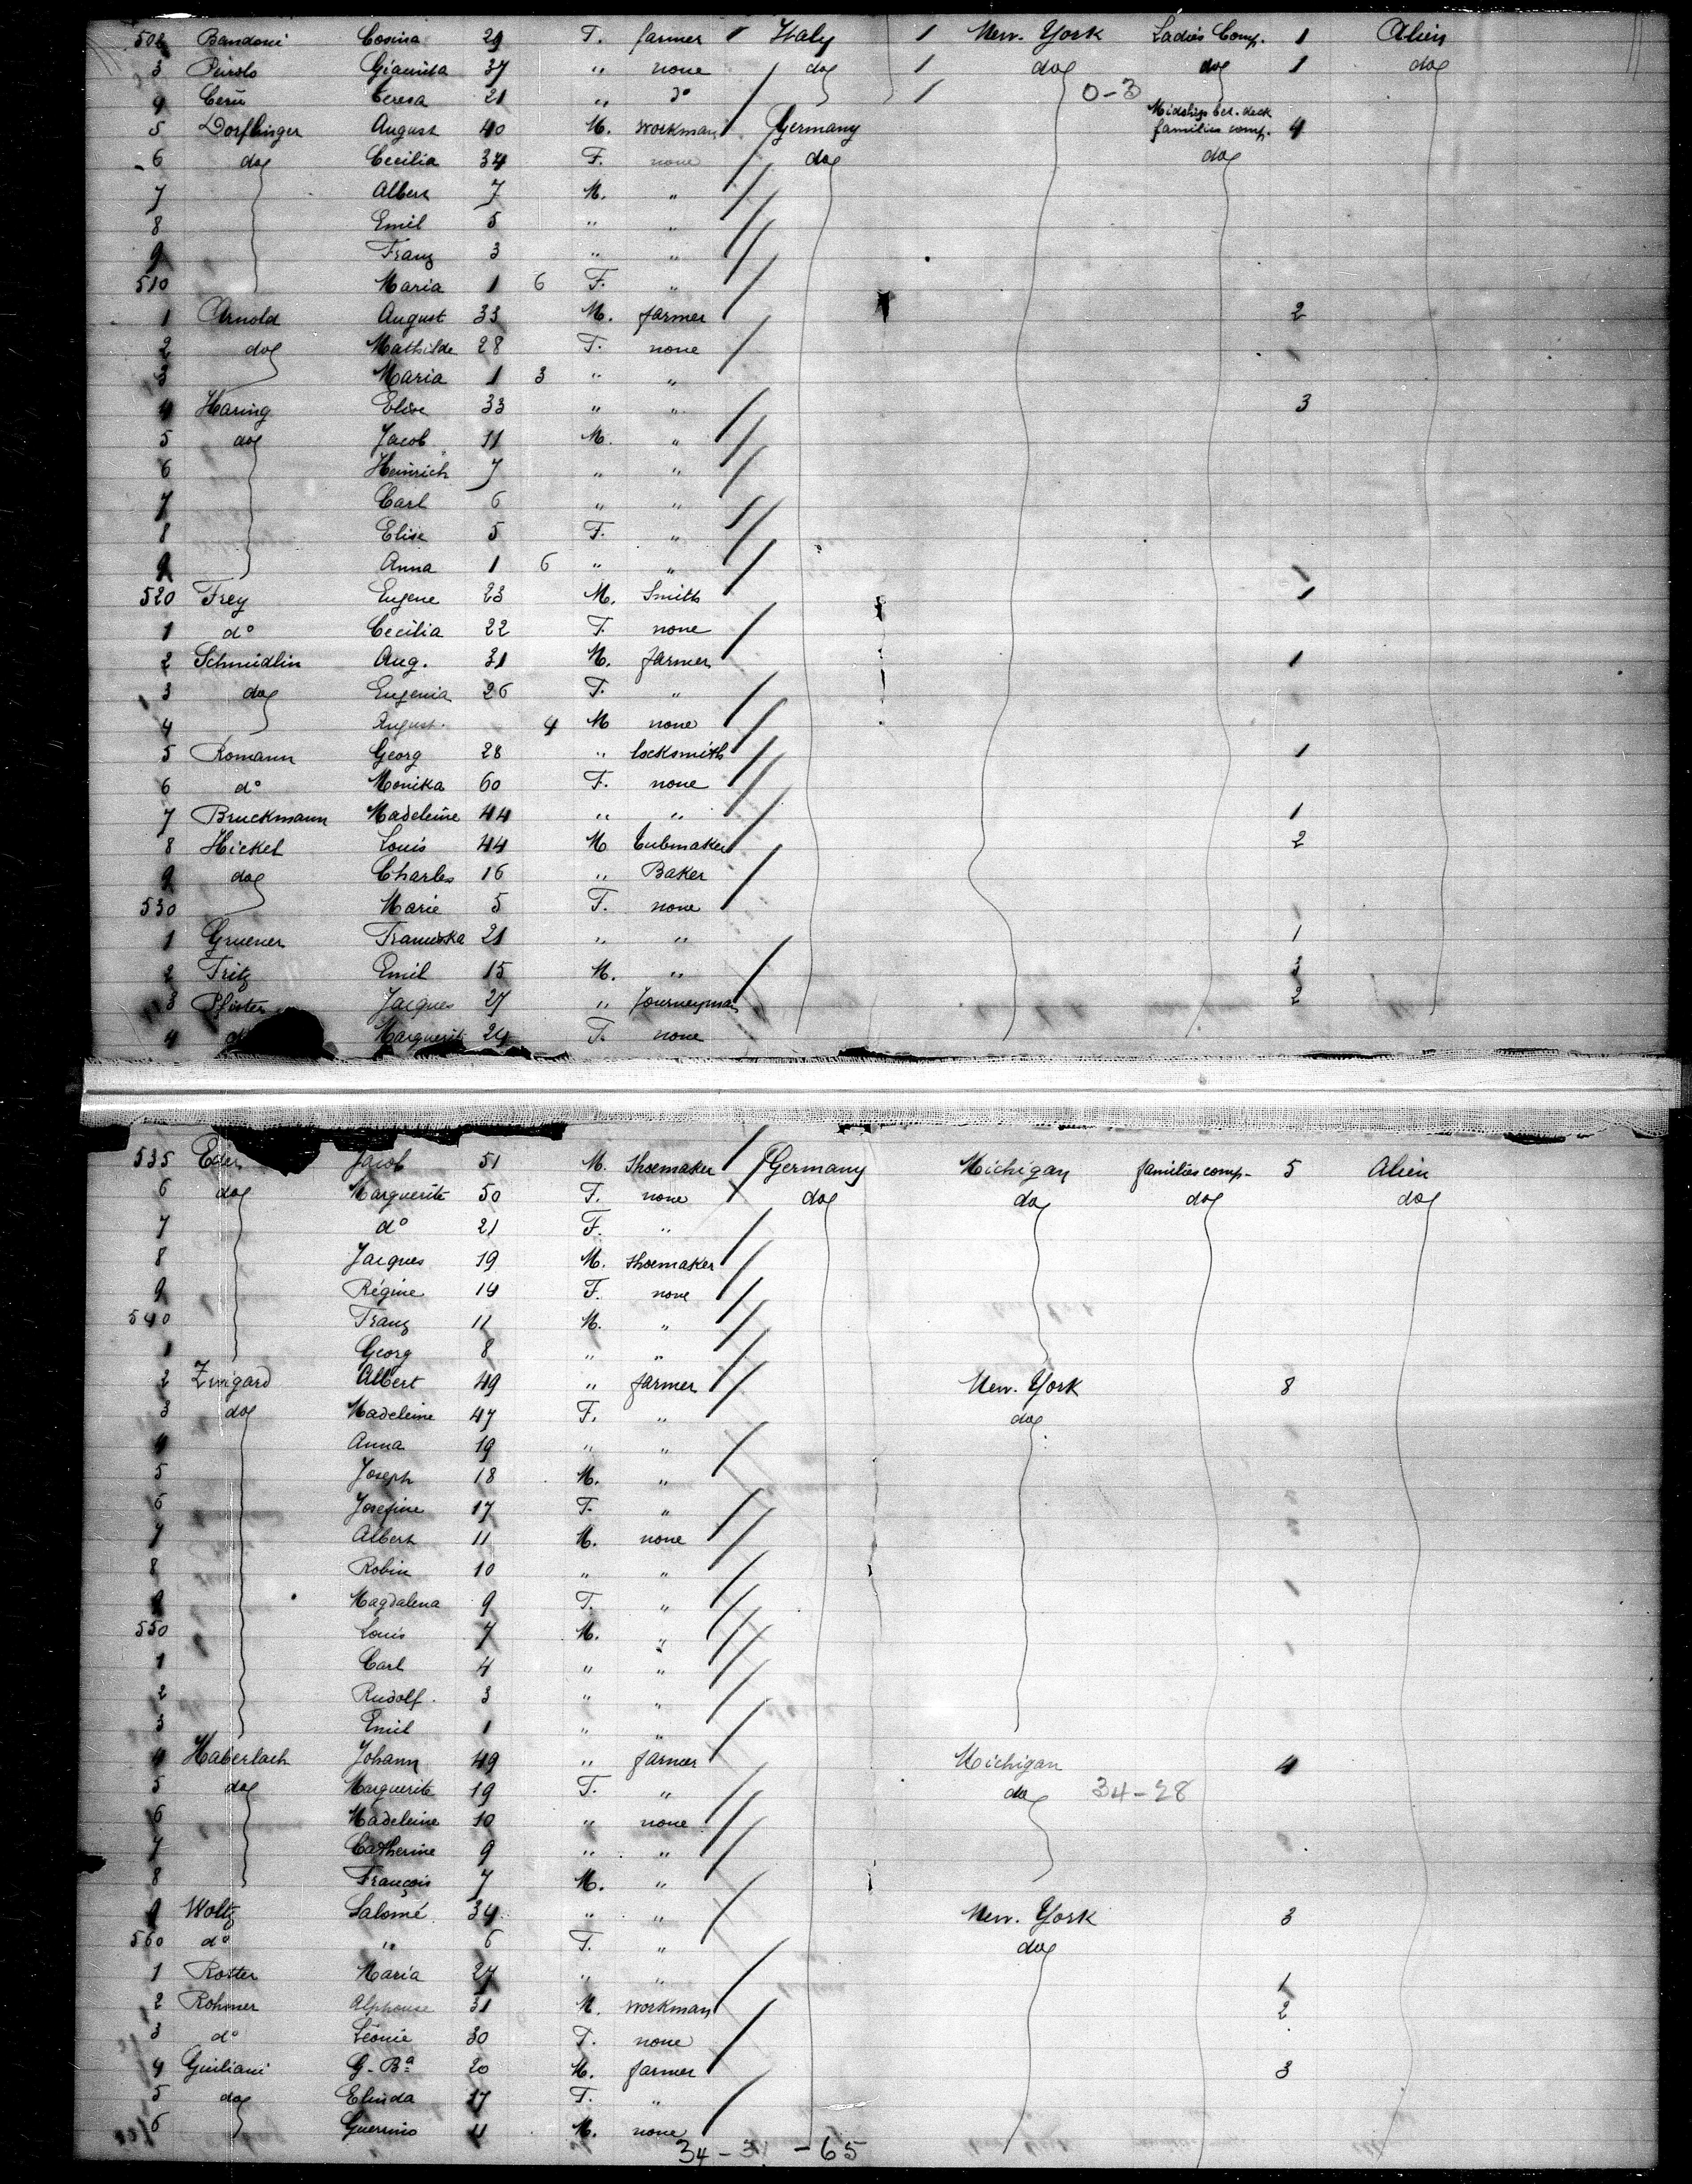 502 Bandoni Cosima 29 F. farmer Italy 1 New-York Ladies Comp. 1 Alien
3 Pirolo 37 " none do 1 do do 1 do
4 Ceru Teresa 21 " do 1 0-3
5 Dorflinger August 40 M. workman Germany Midships bet. deck families comp. 4
6 do Cecilia 34 F. none do do
7 Albert 7 M. "
8 Emil 5 " "
9 Franz 3 " "
510 Maria 1 6 F. "
1 Arnold August 33 M. farmer 2
2 do Mathilde 28 F. none
3 Maria 1 3 " "
4 Haring Elise 33 " " 3
5 do Jacob 11 M. "
6 Heinrich 7 " "
7 Carl 6 " "
8 Elise 5 F. "
9 Anna 1 6 " "
520 Frey Eugene 23 M. Smith 1
1 do Cecilia 22 F. none
2 Schmidlin Aug. 31 M. farmer 1
3 do Eugenia 26 F. "
4 August. 4 M none
5 Romann Georg 28 " locksmith 1
6 do Monika 60 F. none
7 Bruckmann Madeleine 44 " " 1
8 Hickel Louis 44 M Tubmaker 2
9 do Charles 16 " Baker
530 Marie 5 F. none
1 Gruener Franciska 21 " " 1
2 Fritz Emil 15 M. " 3
3 Pfister Jacques 27 " Journeyman 2
4 do Marguerite 24 F. none
535 Jacob 51 M. Shoemaker Germany Michigan families comp- 5 Alien
6 do Marguerite 50 F. none do do do do
7 do 21 F. "
8 Jacques 19 M. Shoemaker
9 Régine 14 F. none
540 Franz 11 M. "
1 Georg 8 " "
2 Zwigard Albert 49 " farmer New-York 8
3 do Madeleine 47 F. " do
4 Anna 19 " "
5 Joseph 18 M. "
6 Josefine 17 F. "
7 Albert 11 M. none
8 Robin 10 " "
9 Magdalena 9 F. "
550 Louis 7 M. "
1 Carl 4 " "
2 Rudolf. 3 " "
3 Emil 1 " "
4 Haberlach Johann 49 " farmer Michigan 4
5 do Marguerite 19 F. " do 34-28
6 Madeleine 10 " none
7 Catherine 9 " "
8 François 7 M. "
9 Woltz Salomé 34 " " New-York 3
560 do " 6 F. " do
1 Rotter Maria 27 " " 1
2 Rohmer Alphonse 31 M. workman 2
3 do Léonie 30 F. none
4 Giuliani G-Ba 20 M. farmer 3
5 do Elinda 17 F. "
6 Guerrino 11 M. none
34-31 -65